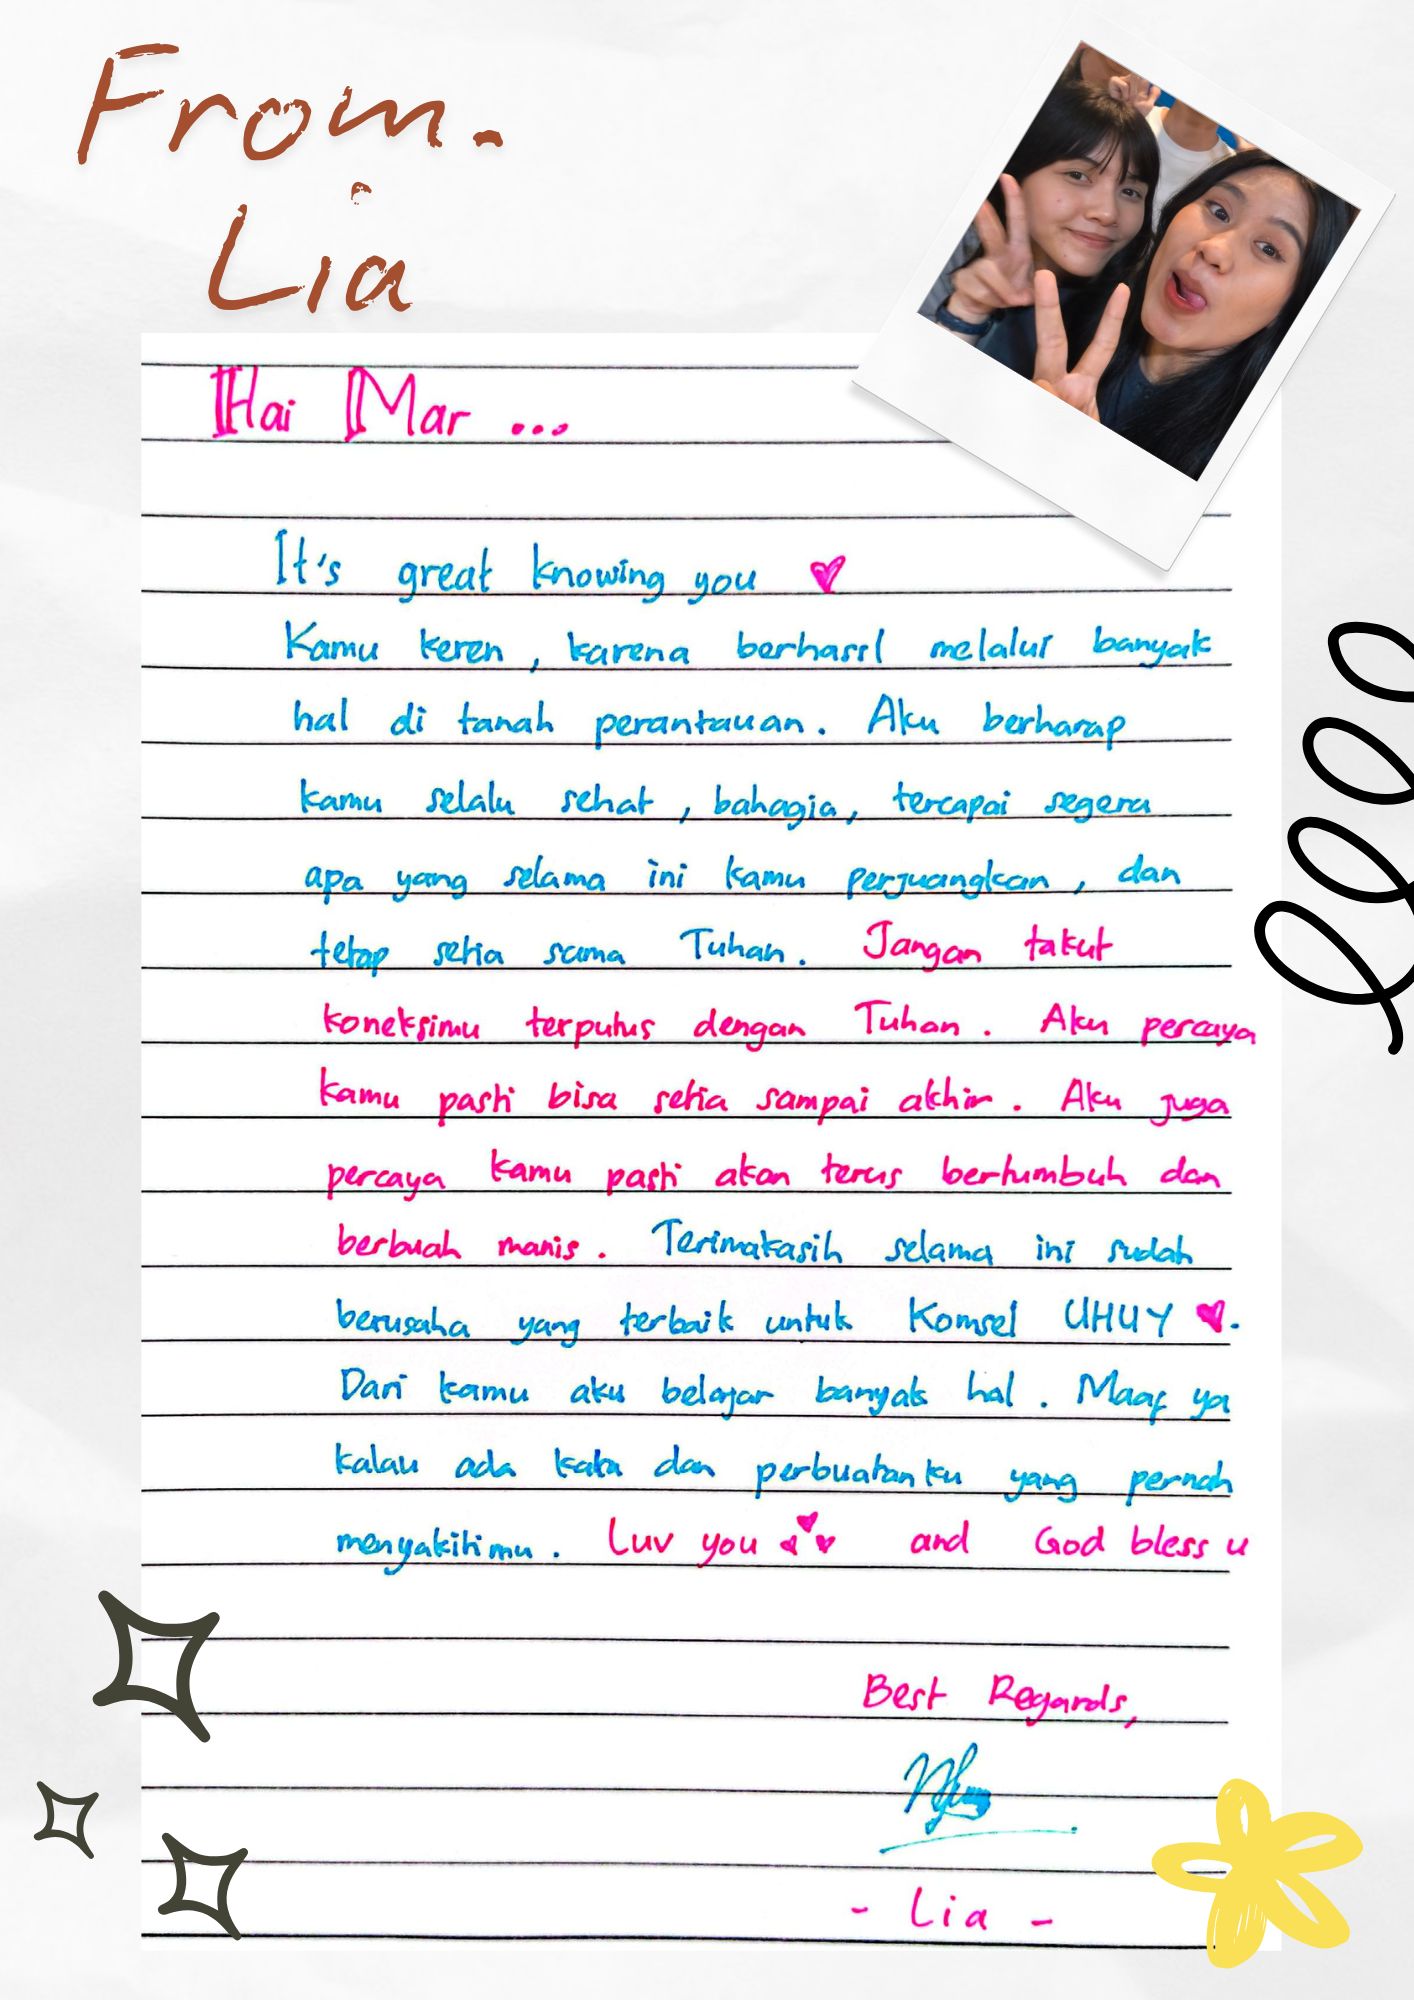 From.
Lia
Hai Mar ...
It's great knowing you
Kamu keren, karena berhasil melalui banyak
hal di tanah perantauan. Aku berharap
kamu selalu sehat, bahagia, tercapai segera
apa yang selama ini kamu perjuangkan, dan
tetap setia sama Tuhan. Jangan takut
koneksimu terputus dengan Tuhan. Aku percaya
kamu pasti bisa setia sampai akhir. Aku juga
percaya kamu pasti akan terus bertumbuh dan
berbuah manis. Terimakasih selama ini sudah
berusaha yang terbaik untuk Komsel UHUY.
Dari kamu aku belajar banyak hal. Maaf ya
kalau ada kata dan perbuatanku yang pernah
menyakitimu. Luv you and God bless u
Best Regards,
- Lia -